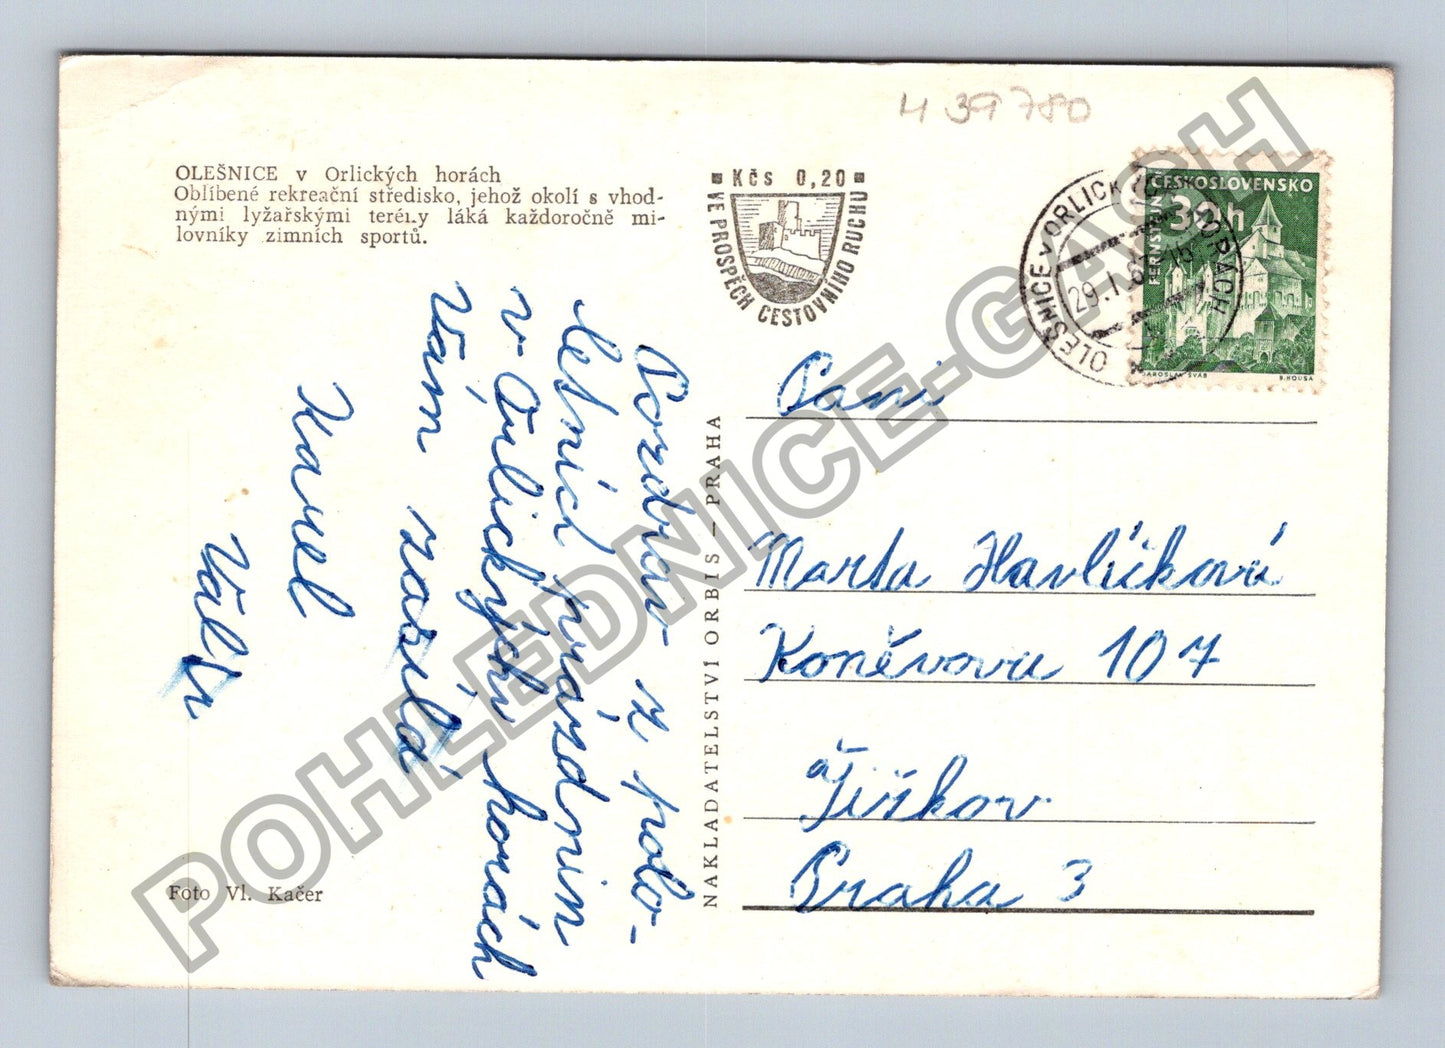 H 39780
OLEŠNICE v Orlických horách
Oblíbené rekreační středisko, jehož okolí s vhod-
nými lyžařskými terény láká každoročně mi-
lovníky zimních sportů.
Kčs 0,20
VE PROSPĚCH CESTOVNÍHO RUCHU
OLEŠNICE v ORLICKÝCH HORÁCH
29.1.6
ČESKOSLOVENSKO
30h
PERNŠTEJN
JAROSLAV ŠVÁB
B. HOUSA
Pozdrav z polo-
letních prázdnin
v Orlických horách
Vám zasílá
Karel
Foto Vl. Kačer
NAKLADATELSTVÍ ORBIS — PRAHA
Paní
Marta Havlíčková
Koněvova 107
Žižkov
Praha 3
POHLEDNICE-GASH